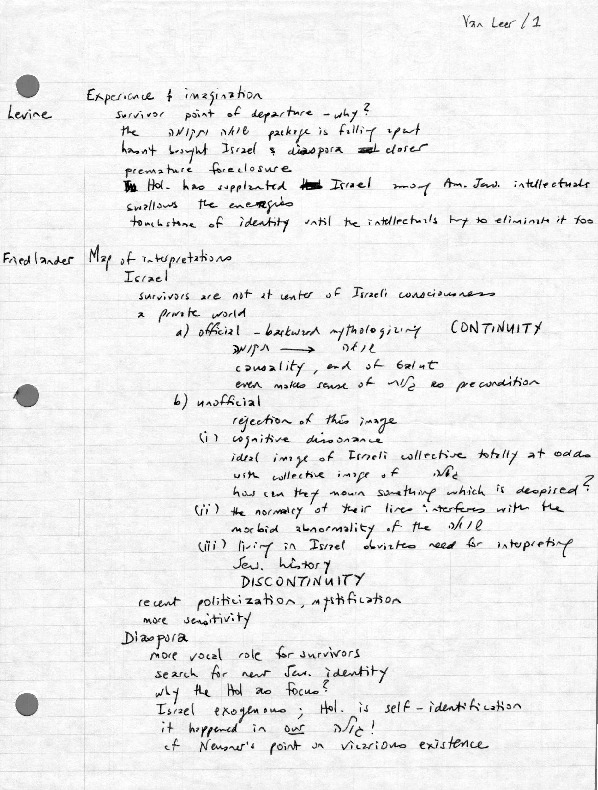 Van Leer / 1
Experience & imagination
Levine survivor point of departure - why?
the שואה תקומה package is falling apart
hasn't brought Israel & diaspora closer
premature foreclosure
Hol. has supplanted Israel among Am. Jew. intellectuals
swallows the energies
touchstone of identity until the intellectuals try to eliminate it too
Friedlander Map of interpretations
Israel
survivors are not at center of Israeli consciousness
a private world
a) official - backward mythologizing CONTINUITY
תקומה → שואה
causality, end of Galut
even makes sense of גלות as precondition
b) unofficial
rejection of this image
(i) cognitive dissonance
ideal image of Israeli collective totally at odds
with collective image of גולה
how can they mourn something which is despised?
(ii) the normalcy of their lives interferes with the
morbid abnormality of the שואה
(iii) living in Israel obviates need for interpreting
Jew. history
DISCONTINUITY
recent politicization, mystification
more sensitivity
Diaspora
more vocal role for survivors
search for new Jew. identity
why the Hol as focus?
Israel exogenous; Hol. is self-identification
it happened in our גולה!
cf Neusner's point on vicarious existence